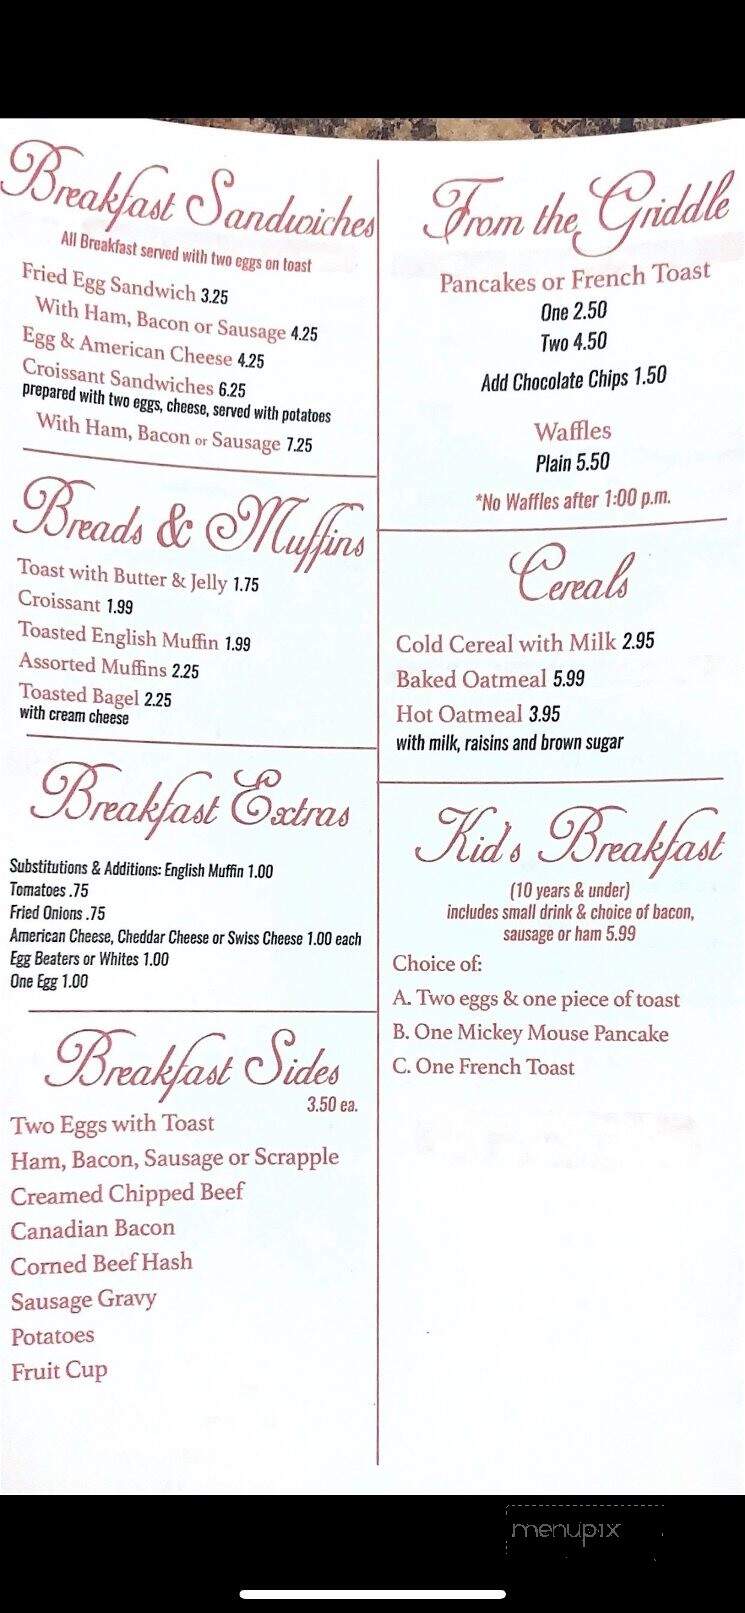 Breakfast Sandwiches
All Breakfast served with two eggs on toast
Fried Egg Sandwich 3.25
With Ham, Bacon or Sausage 4.25
Egg & American Cheese 4.25
Croissant Sandwiches 6.25
prepared with two eggs, cheese, served with potatoes
With Ham, Bacon or Sausage 7.25
Breads & Muffins
Toast with Butter & Jelly 1.75
Croissant 1.99
Toasted English Muffin 1.99
Assorted Muffins 2.25
Toasted Bagel 2.25
with cream cheese
Breakfast Extras
Substitutions & Additions: English Muffin 1.00
Tomatoes .75
Fried Onions .75
American Cheese, Cheddar Cheese or Swiss Cheese 1.00 each
Egg Beaters or Whites 1.00
One Egg 1.00
Breakfast Sides
3.50 ea.
Two Eggs with Toast
Ham, Bacon, Sausage or Scrapple
Creamed Chipped Beef
Canadian Bacon
Corned Beef Hash
Sausage Gravy
Potatoes
Fruit Cup
From the Griddle
Pancakes or French Toast
One 2.50
Two 4.50
Add Chocolate Chips 1.50
Waffles
Plain 5.50
*No Waffles after 1:00 p.m.
Cereals
Cold Cereal with Milk 2.95
Baked Oatmeal 5.99
Hot Oatmeal 3.95
with milk, raisins and brown sugar
Kid's Breakfast
(10 years & under)
includes small drink & choice of bacon,
sausage or ham 5.99
Choice of:
A. Two eggs & one piece of toast
B. One Mickey Mouse Pancake
C. One French Toast
menupix